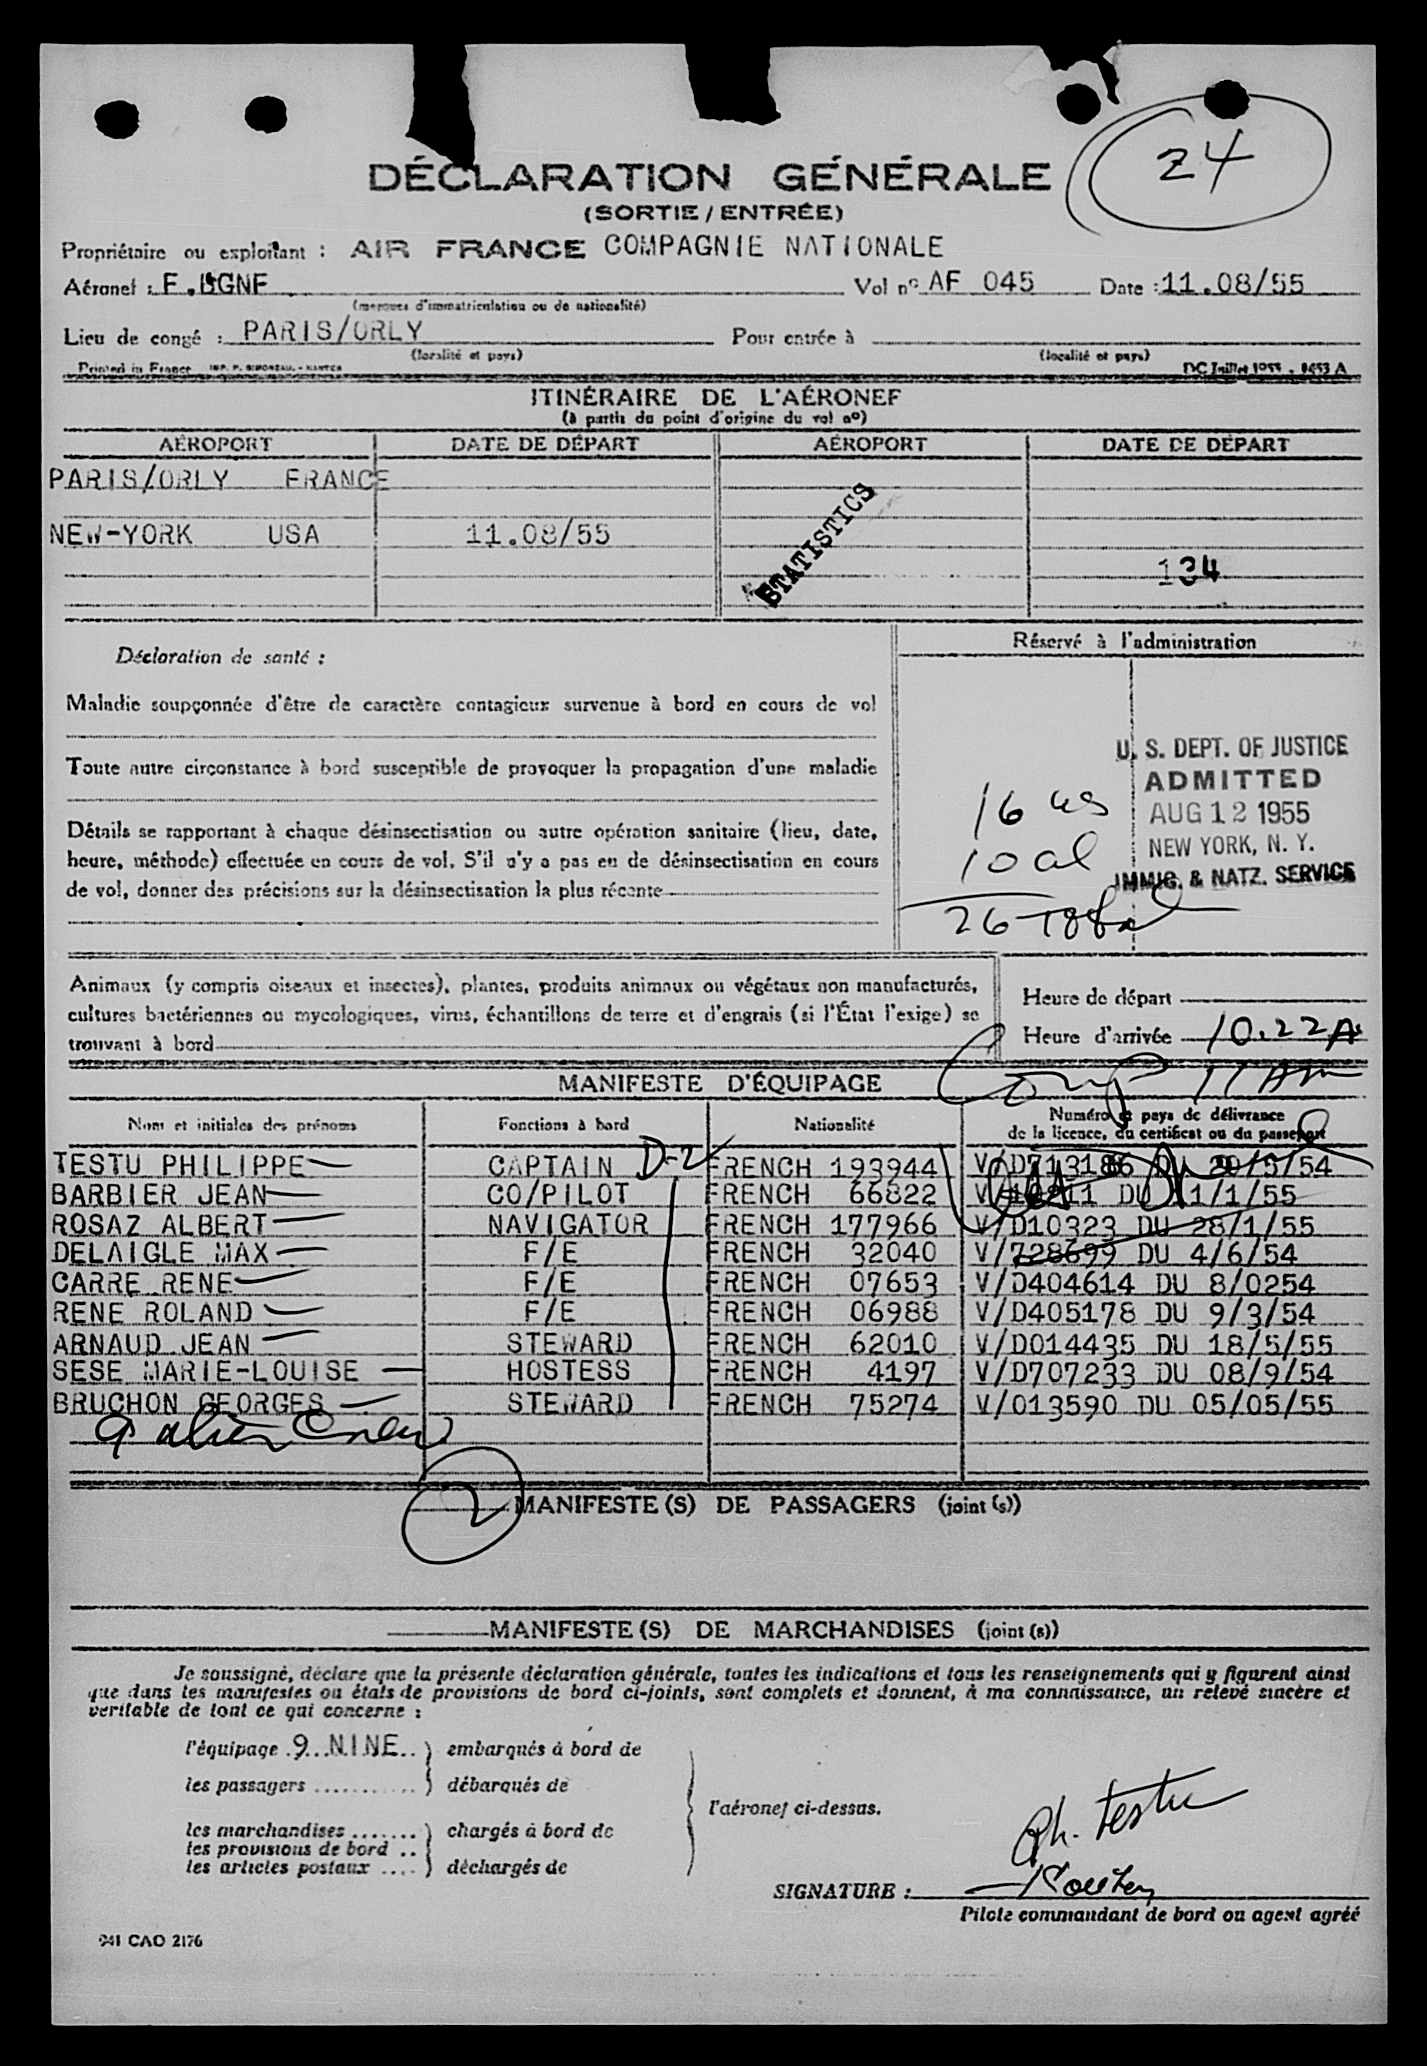 24
DÉCLARATION GÉNÉRALE
(SORTIE / ENTRÉE)
Propriétaire ou exploitant : AIR FRANCE COMPAGNIE NATIONALE
Aéronef : F.BGNF Vol nº AF 045 Date : 11.08/55
(marques d'immatriculation ou de nationalité)
Lieu de congé : PARIS/ORLY Pour entrée à
(localité et pays) (localité et pays)
Printed in France IMP. P. SIMONEAU. - NANTES DC Juillet 1953 - 8453 A
ITINÉRAIRE DE L'AÉRONEF
(à partir du point d'origine du vol nº)
AÉROPORT DATE DE DÉPART AÉROPORT DATE DE DÉPART
PARIS/ORLY FRANCE
NEW-YORK USA 11.08/55
STATISTICS
134
Réservé à l'administration
Déclaration de santé :
Maladie soupçonnée d'être de caractère contagieux survenue à bord en cours de vol
Toute autre circonstance à bord susceptible de provoquer la propagation d'une maladie
Détails se rapportant à chaque désinsectisation ou autre opération sanitaire (lieu, date,
heure, méthode) effectuée en cours de vol. S'il n'y a pas eu de désinsectisation en cours
de vol, donner des précisions sur la désinsectisation la plus récente
U. S. DEPT. OF JUSTICE
ADMITTED
AUG 12 1955
NEW YORK, N. Y.
IMMIG. & NATZ. SERVICE
16 us
10 al
26 Total
Animaux (y compris oiseaux et insectes), plantes, produits animaux ou végétaux non manufacturés,
cultures bactériennes ou mycologiques, virus, échantillons de terre et d'engrais (si l'État l'exige) se
trouvant à bord
Heure de départ
Heure d'arrivée 10.22A
Comp 11 Am
MANIFESTE D'ÉQUIPAGE
Nom et initiales des prénoms Fonctions à bord Nationalité Numéro et pays de délivrance
de la licence, du certificat ou du passeport
D-2
TESTU PHILIPPE CAPTAIN FRENCH 193944 V/D713186 DU 20/5/54
BARBIER JEAN CO/PILOT FRENCH 66822 DU 11/1/55
ROSAZ ALBERT NAVIGATOR FRENCH 177966 V/D10323 DU 28/1/55
DELAIGLE MAX F/E FRENCH 32040 V/728699 DU 4/6/54
CARRE RENE F/E FRENCH 07653 V/D404614 DU 8/0254
RENE ROLAND F/E FRENCH 06988 V/D405178 DU 9/3/54
ARNAUD JEAN STEWARD FRENCH 62010 V/D014435 DU 18/5/55
SESE MARIE-LOUISE HOSTESS FRENCH 4197 V/D707233 DU 08/9/54
BRUCHON GEORGES STEWARD FRENCH 75274 V/013590 DU 05/05/55
9 alien Crew
2 MANIFESTE (S) DE PASSAGERS (joint (s))
MANIFESTE (S) DE MARCHANDISES (joint (s))
Je soussigné, déclare que la présente déclaration générale, toutes les indications et tous les renseignements qui y figurent ainsi
que dans les manifestes ou états de provisions de bord ci-joints, sont complets et donnent, à ma connaissance, un relevé sincère et
véritable de tout ce qui concerne :
l'équipage .9...NINE..) embarqués à bord de
les passagers ...........) débarqués de
l'aéronef ci-dessus.
les marchandises .......) chargés à bord de
les provisions de bord ..
les articles postaux ....) déchargés de
Ph. Testu
SIGNATURE :
Pilote commandant de bord ou agent agréé
941 CAO 2176